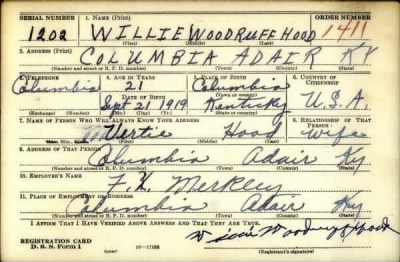 SERIAL NUMBER 1. NAME (Print) ORDER NUMBER
1202 WILLIE WOODRUFF HOOD 1411
(First) (Middle) (Last)
2. ADDRESS (Print)
COLUMBIA ADAIR KY
(Number and street or R. F. D. number) (Town) (County) (State)
3. TELEPHONE 4. AGE IN YEARS 5. PLACE OF BIRTH 6. COUNTRY OF CITIZENSHIP
Columbia 21 Columbia
(Town or county)
DATE OF BIRTH
Sept 21 1919 Kentucky U.S.A.
(Exchange) (Number) (Mo.) (Day) (Yr.) (State or country)
7. NAME OF PERSON WHO WILL ALWAYS KNOW YOUR ADDRESS 8. RELATIONSHIP OF THAT PERSON
Vertie Hood Wife
(First) (Middle) (Last)
9. ADDRESS OF THAT PERSON
Columbia Adair Ky
(Number and street or R. F. D. number) (Town) (County) (State)
10. EMPLOYER'S NAME
11. PLACE OF EMPLOYMENT OR BUSINESS
Columbia Adair Ky
(Number and street or R. F. D. number) (Town) (County) (State)
I AFFIRM THAT I HAVE VERIFIED ABOVE ANSWERS AND THAT THEY ARE TRUE.
REGISTRATION CARD
D. S. S. FORM 1
Willie Woodruff Hood
(Registrant's signature)